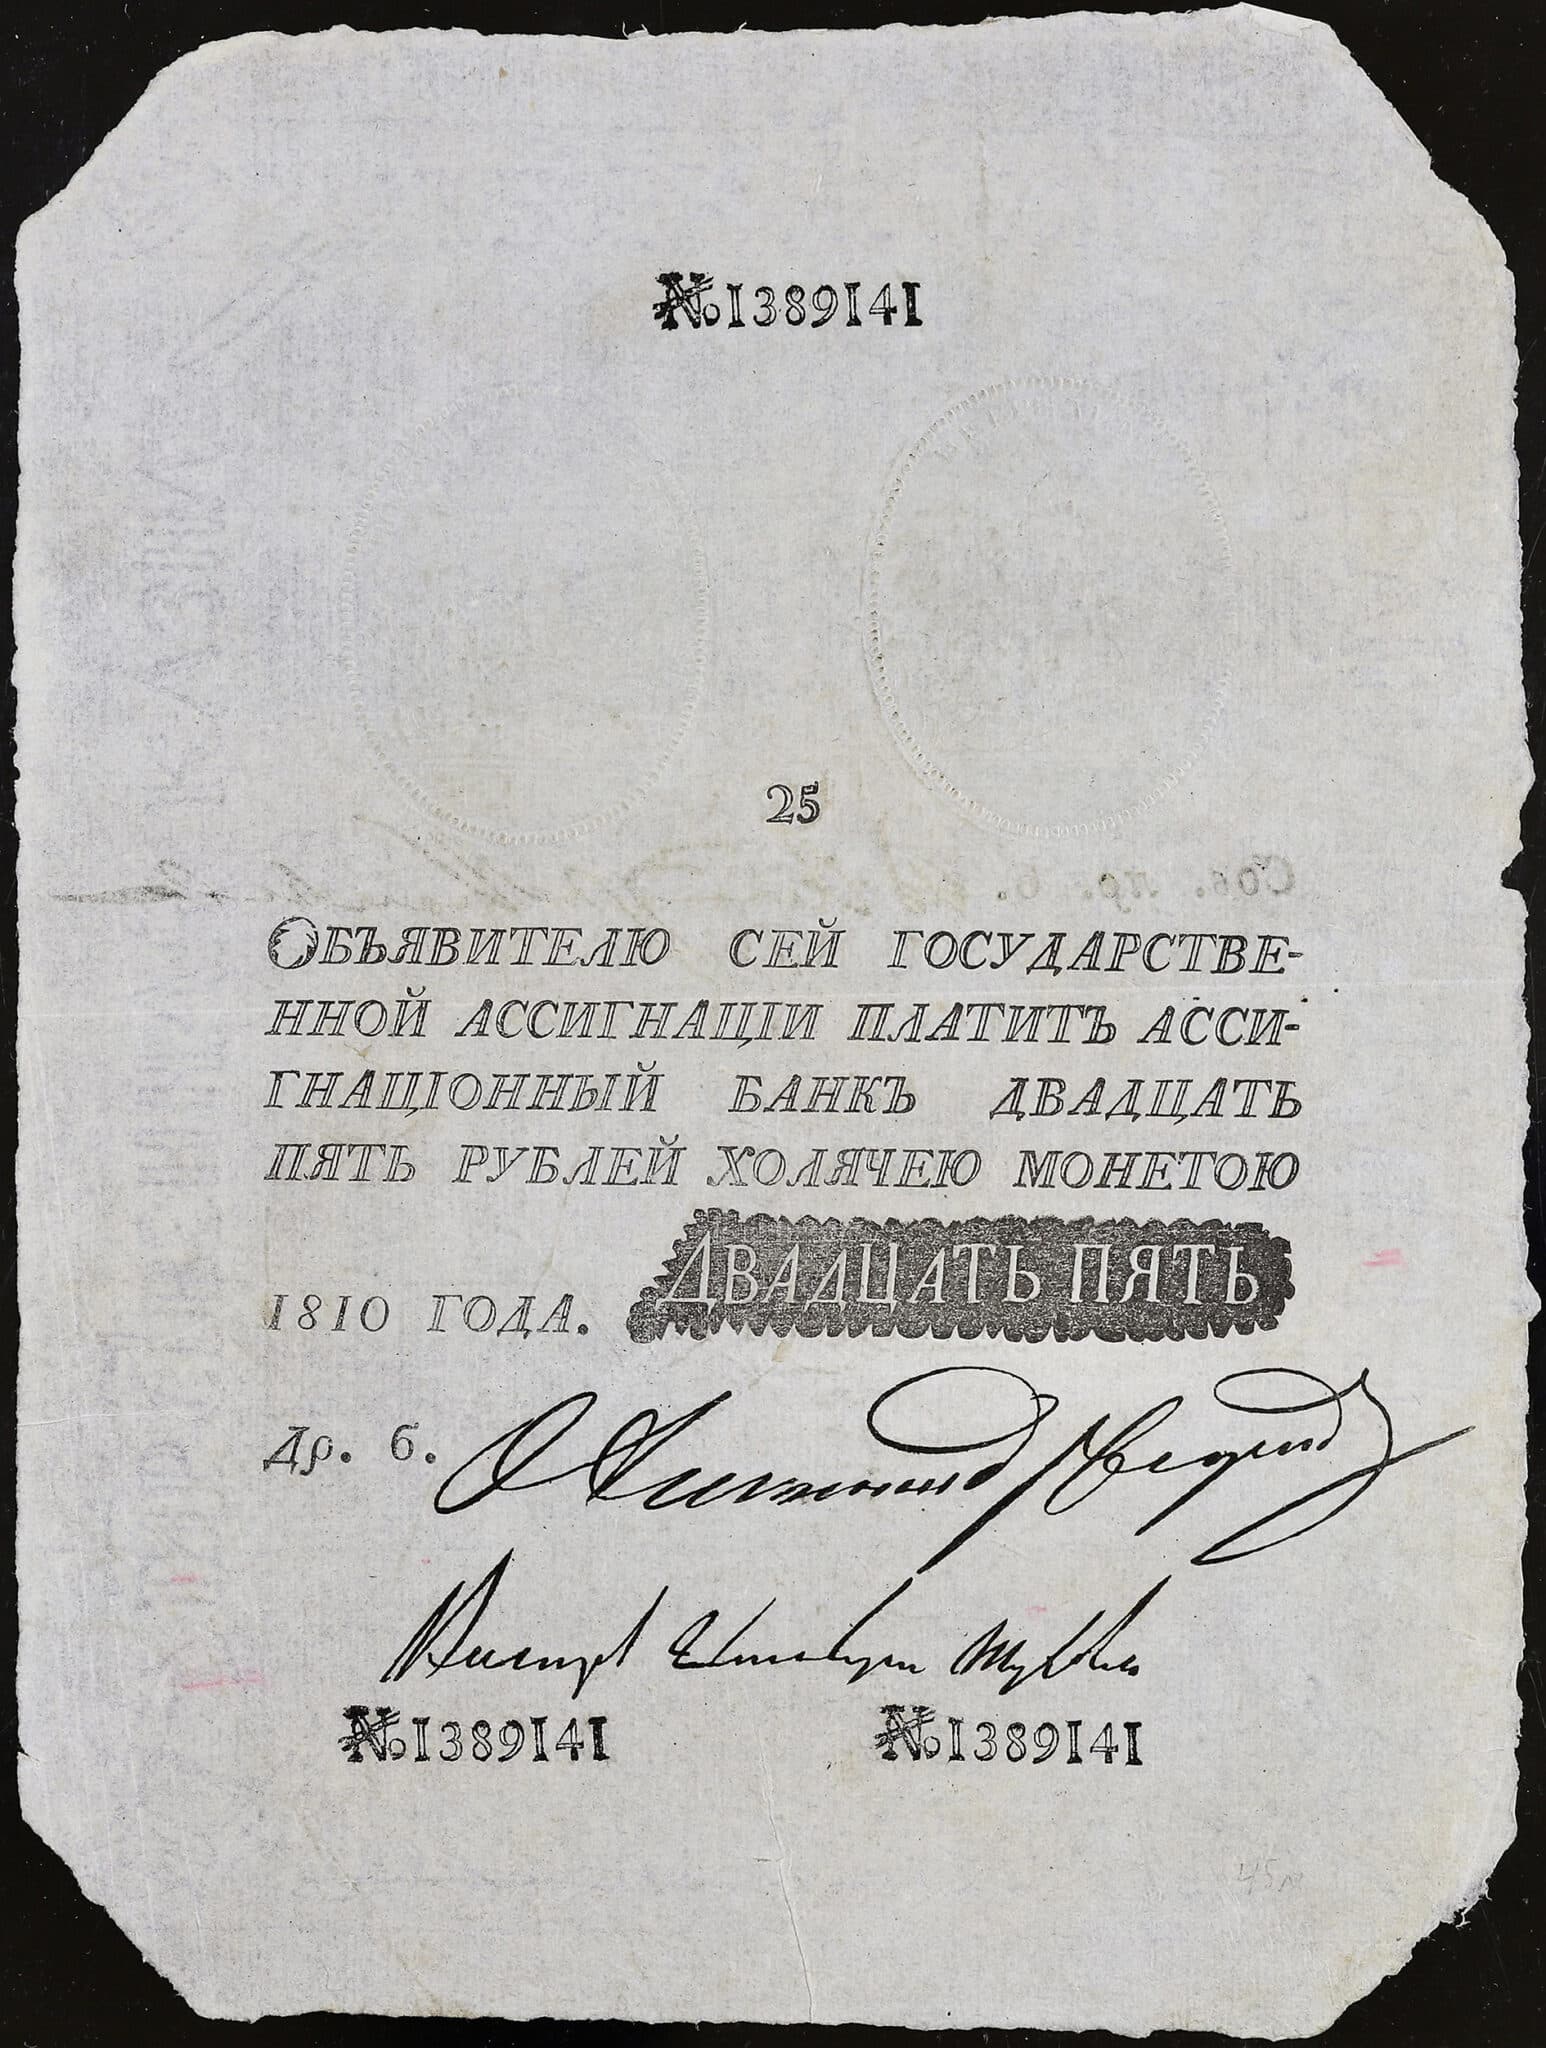 № 1389141
25
ОБЪЯВИТЕЛЮ СЕЙ ГОСУДАРСТВЕ-
ННОЙ АССИГНАЦIИ ПЛАТИТЪ АССИ-
ГНАЦIОННЫЙ БАНКЪ ДВАДЦАТЬ
ПЯТЬ РУБЛЕЙ ХОЛЯЧЕЮ МОНЕТОЮ
1810 ГОДА. ДВАДЦАТЬ ПЯТЬ
др. б.
№ 1389141 № 1389141